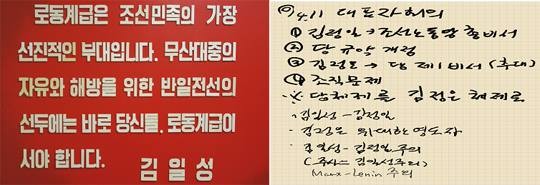 로동계급은 조선민족의 가장
선진적인 부대입니다. 무산대중의
자유와 해방을 위한 반일전선의
선두에는 바로 당신들, 로동계급이
서야 합니다.
김일성
4.11 대표자회의
① 김정일 → 조선노동당 총비서
② 당 규약 개정
③ 김정은 → 당 제1비서 (추대)
④ 조직문제
※ 당 체제를 김정은 체제로
· 김일성 - 김정일
· 김정은 위대한 영도자
· 김일성 - 김정일 주의
(주사는 김일성주의)
Marx-Lenin 주의